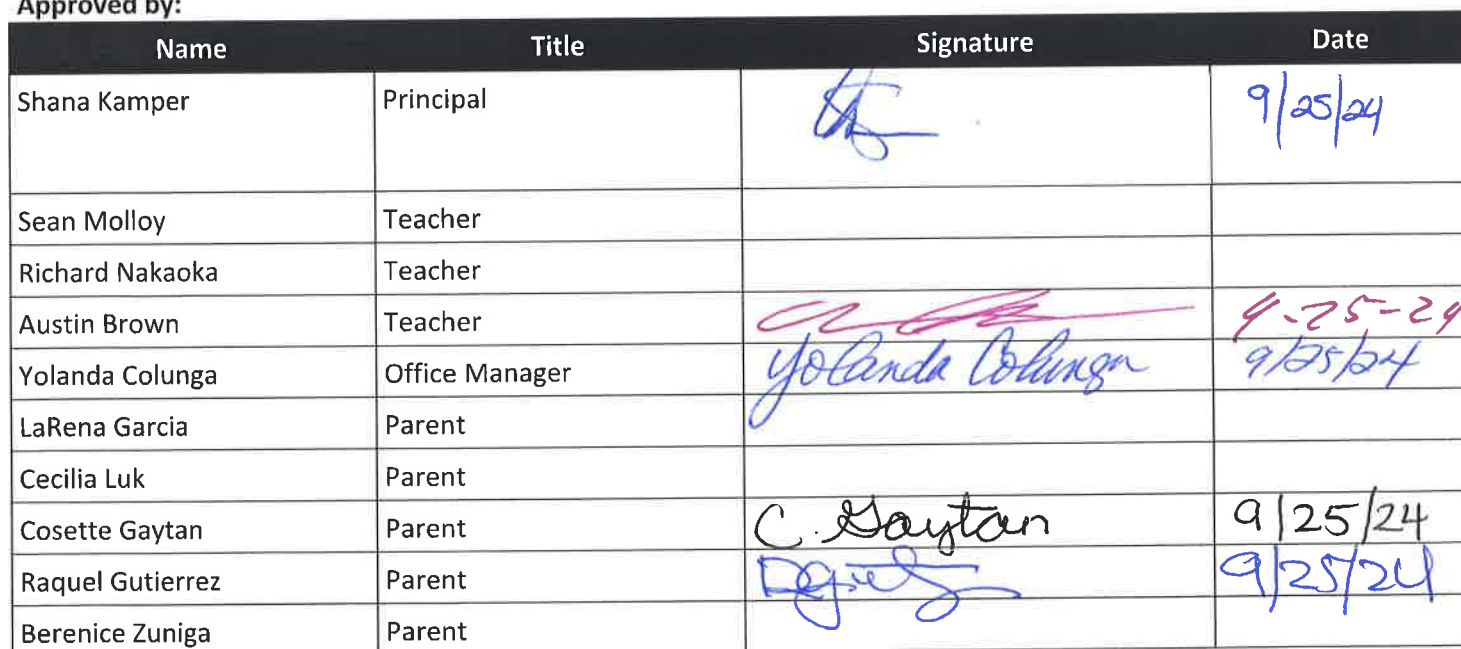 Approved by:
Name Title Signature Date
Shana Kamper Principal 9/25/24
Sean Molloy Teacher
Richard Nakaoka Teacher
Austin Brown Teacher 9-25-24
Yolanda Colunga Office Manager Yolanda Colunga 9/25/24
LaRena Garcia Parent
Cecilia Luk Parent
Cosette Gaytan Parent C. Gaytan 9/25/24
Raquel Gutierrez Parent 9/25/24
Berenice Zuniga Parent